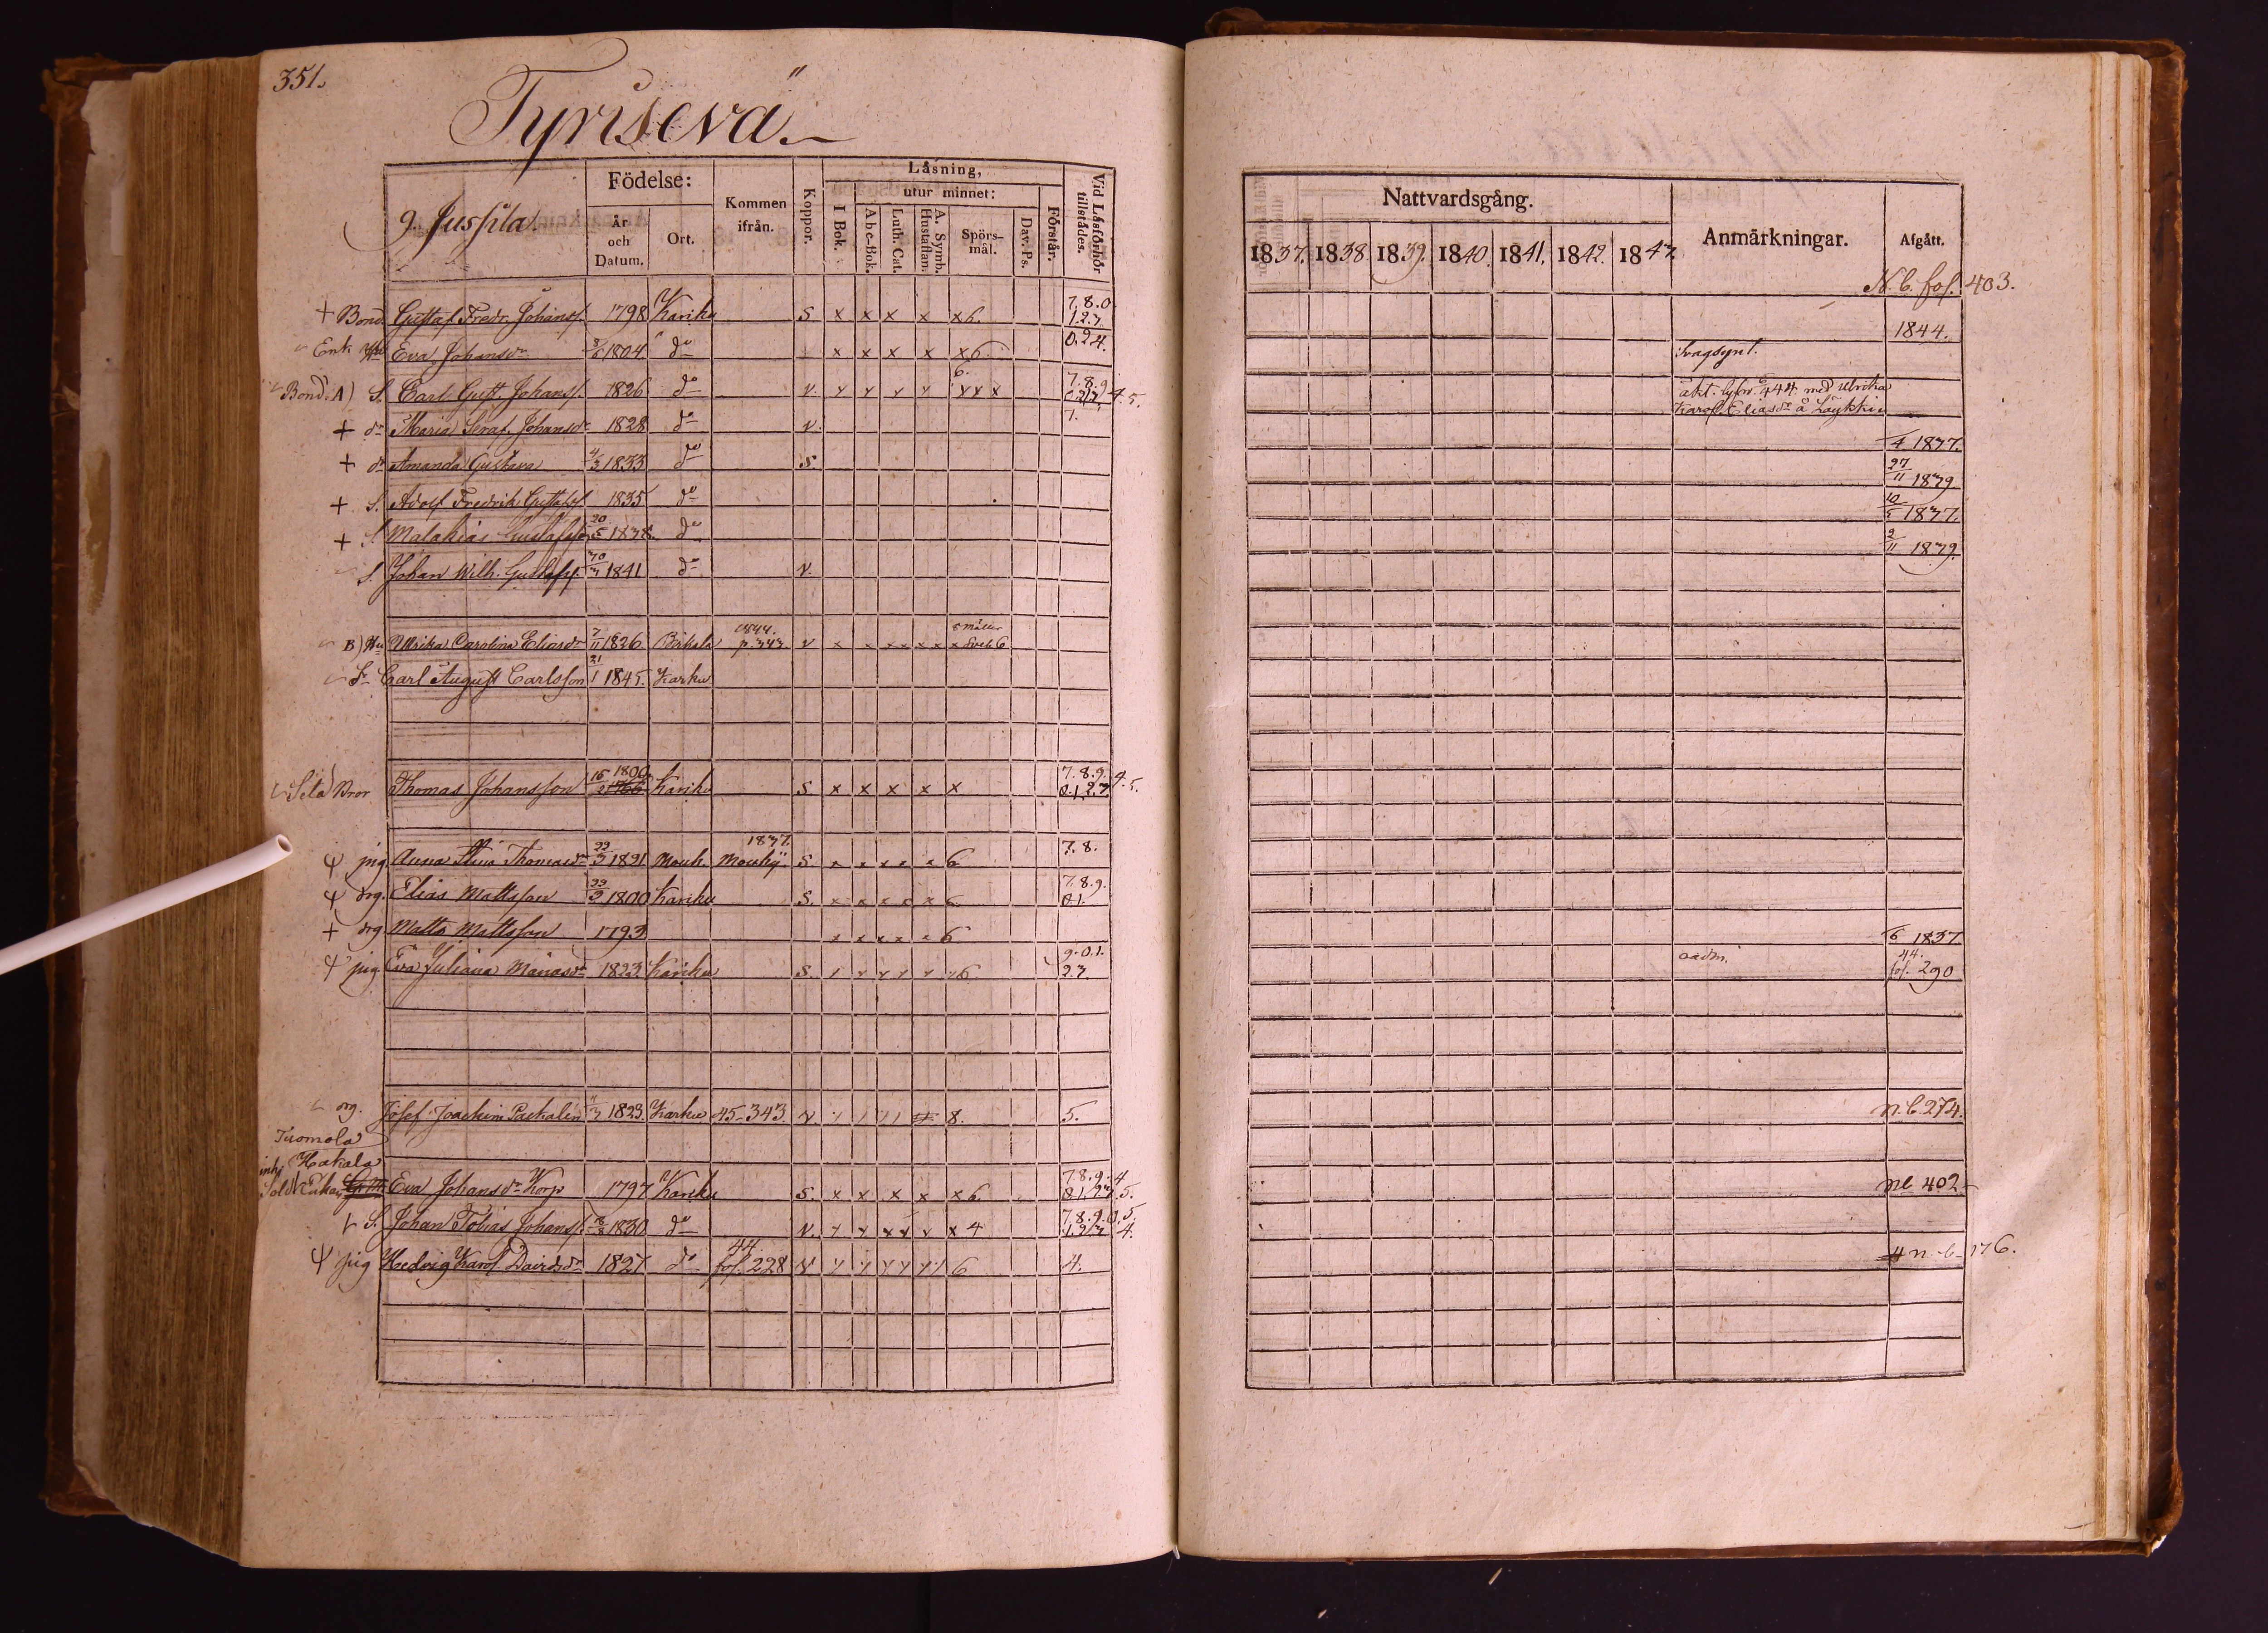 351.
Tyrisevä
Födelse:
Läsning,
Vid Läsförhör tillstådes.
9. Jussila.
År och Datum.
Ort.
Kommen ifrån.
Koppor.
I Bok.
utur minnet:
Abc-Bok.
Luth. Cat.
A. Symb. Hustaflan.
Spörs-mål.
Dav. Ps.
Förstår.
+ Bond. Gustaf Fredr. Johanss. 1798 Kariku S x x x x x6. 7.8.0 1.2.3
Enk Hu Eva Johansdr 1804 do x x x x x6. 0.2.4.
Bond. A) S. Carl Gust. Johanss. 1826 do v. 6. 7.8.9 4.5.
+ dr Maria Seraf. Johansdr 1828 do v. 7.
+ dr Amanda Gustava 4/3 1833 do S
+ S. Adolf Fredrik Gustafss. 1835 do
+ S. Malakias Gustafsson 20/5 1838. do
S. Johan Wilh. Gustafss. 30/3 1841 do v.
B) Hu Ulrika Carolina Eliasdr 7/11 1826 Birkala 1844. p. 343 v x x x x x x x 6
Sn Carl August Carlsson 21/1 1845. Karku
Bror Thomas Johansson 1800 Kariku S x x x x x 7.8.9. 4.5. 0.1.2.3
pig. Anna Stina Thomasdr 22/3 1821 Mouh. 1837. Mouhij. S x x x x x 6 7.8.
drg. Elias Mattsson 1800 Kariku S. x x x x x 6 7.8.9. 0.1.
+ drg Matts Mattsson 1793 x x x x x 6
pig. Eva Juliana Mariasdr 1823. Kariku S. 6 9.0.1. 2.3.
drg. Josef Joachim 1823. Karku 45-343 v. 8. 5.
Tuomola
inh. Hakala
Sold. Enka Eva Johansdr Korp 1797 Kariku S. x x x x x6. 7.8.9.4 0.1.2.3 5.
S. Johan Tobias Johanss. 1830 do v. x 4 7.8.9.0.5. 1.2.3 4.
pig Hedvig Karol. Davidsdr 1827 do 44. fol. 228 v 6 4.
Nattvardsgång.
Anmärkningar.
Afgått.
1837. 1838 1839. 1840. 1841. 1842. 1843.
N. b. fol. 403.
1844.
Svagsynt.
äkt. 444 med Ulrika
Karol. Eliasdr å Laykki
4 1837.
27/11 1839.
10/5 1837.
2/11 1839.
6 1837
oadm. 44. fol. 290
n.b. 274.
nb 402.
n. b. 176.